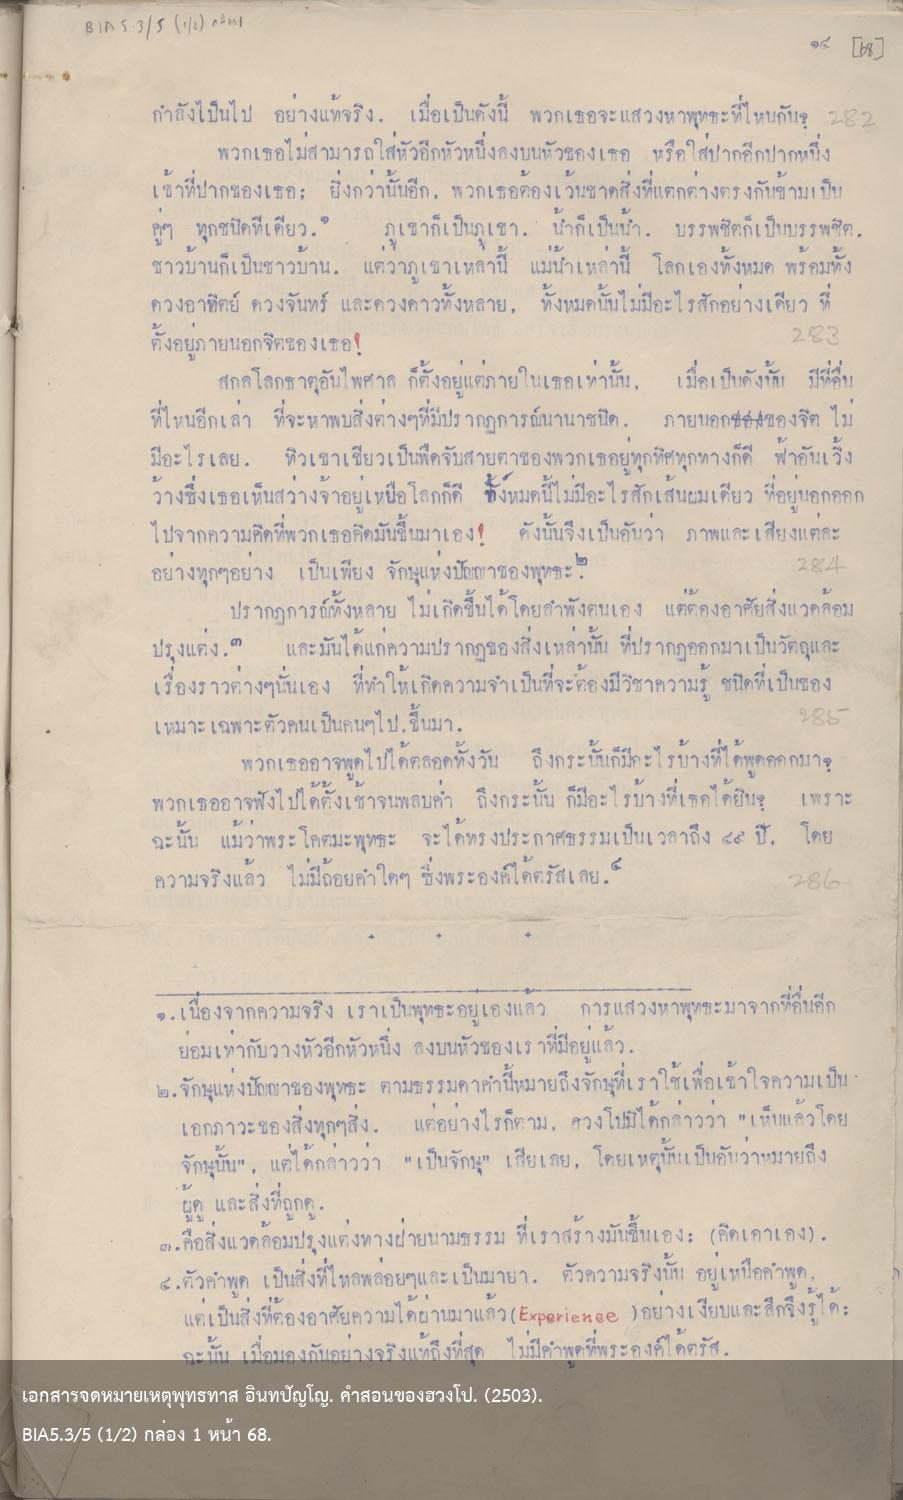 BIA 5.3/5 (1/2) กล่อง 1
๑๔ [68]
กำลังไป็นไป อย่างแท้จริง. เมื่อเป็นดังนี้ พวกเธอจะแสวงหาพุทธะที่ไหนกัน? 282
พวกเธอไม่สามารถใส่หัวอีกหัวหนึ่งลงบนหัวของเธอ หรือใส่ปากอีกปากหนึ่ง
เข้าที่ปากของเธอ; ยิ่งกว่านั้นอีก, พวกเธอต้องเว้นขาดสิ่งที่แตกต่างตรงกันข้ามเป็น
คู่ๆ ทุกชนิดทีเดียว.๑ ภูเขาก็เป็นภูเขา. น้ำก็เป็นน้ำ. บรรพชิตก็เป็นบรรพชิต.
ชาวบ้านก็เป็นชาวบ้าน. แต่ว่าภูเขาเหล่านี้ แม่น้ำเหล่านี้ โลกเองทั้งหมด พร้อมทั้ง
ดวงอาทิตย์ ดวงจันทร์ และดวงดาวทั้งหลาย, ทั้งหมดนั้นไม่มีอะไรสักอย่างเดียว ที่
ตั้งอยู่ภายนอกจิตของเธอ! 283
สกลโลกธาตุอันไพศาล ก็ตั้งอยู่แต่ภายในเธอเท่านั้น, เมื่อเป็นดังนั้น มีที่อื่น
ที่ไหนอีกเล่า ที่จะหาพบสิ่งต่างๆที่มีปรากฏการณ์นานาชนิด. ภายนอกของจิต ไม่
มีอะไรเลย. ทิวเขาเขียวเป็นพืดจับสายตาของพวกเธออยู่ทุกทิศทุกทางก็ดี ฟ้าอันเวิ้ง
ว้างซึ่งเธอเห็นสว่างจ้าอยู่เหนือโลกก็ดี ทั้งหมดนี้ไม่มีอะไรสักเส้นผมเดียว ที่อยู่นอกออก
ไปจากความคิดที่พวกเธอคิดมันขึ้นมาเอง! ดังนั้นจึงเป็นอันว่า ภาพและเสียงแต่ละ
อย่างทุกๆอย่าง เป็นเพียง จักษุแห่งปัญญาของพุทธะ.๒ 284
ปรากฏการณ์ทั้งหลาย ไม่เกิดขึ้นได้โดยลำพังตนเอง แต่ต้องอาศัยสิ่งแวดล้อม
ปรุงแต่ง.๓ และมันได้แก่ความปรากฏของสิ่งเหล่านั้น ที่ปรากฏออกมาเป็นวัตถุและ
เรื่องราวต่างๆนั่นเอง ที่ทำให้เกิดความจำเป็นที่จะต้องมีวิชาความรู้ ชนิดที่เป็นของ
เหมาะเฉพาะตัวคนเป็นคนๆไป,ขึ้นมา. 285
พวกเธออาจพูดไปได้ตลอดทั้งวัน ถึงกระนั้นก็มีอะไรบ้างที่ได้พูดออกมา?
พวกเธออาจฟังไปได้ตั้งเช้าจนพลบค่ำ ถึงกระนั้น ก็มีอะไรบ้างที่เธอได้ยิน? เพราะ
ฉะนั้น แม้ว่าพระโคตมะพุทธะ จะได้ทรงประกาศธรรมเป็นเวลาถึง ๔๙ ปี, โดย
ความจริงแล้ว ไม่มีถ้อยคำใดๆ ซึ่งพระองค์ได้ตรัสเลย.๔ 286
๑.เนื่องจากความจริง เราเป็นพุทธะอยู่เองแล้ว การแสวงหาพุทธะมาจากที่อื่นอีก
ย่อมเท่ากับวางหัวอีกหัวหนึ่ง ลงบนหัวของเราที่มีอยู่แล้ว.
๒.จักษุแห่งปัญญาของพุทธะ ตามธรรมดาคำนี้หมายถึงจักษุที่เราใช้เพื่อเข้าใจความเป็น
เอกภาวะของสิ่งทุกๆสิ่ง. แต่อย่างไรก็ตาม, ฮวงโปมิได้กล่าวว่า "เห็นแล้วโดย
จักษุนั้น", แต่ได้กล่าวว่า "เป็นจักษุ" เสียเลย, โดยเหตุนั้นเป็นอันว่าหมายถึง
ผู้ดู และสิ่งที่ถูกดู.
๓.คือสิ่งแวดล้อมปรุงแต่งทางฝ่ายนามธรรม ที่เราสร้างมันขึ้นเอง; (คิดเอาเอง).
๔.ตัวคำพูด เป็นสิ่งที่ไหลพล่อยๆและเป็นมายา. ตัวความจริงนั้น อยู่เหนือคำพูด,
แต่เป็นสิ่งที่ต้องอาศัยความได้ผ่านมาแล้ว(Experience )อย่างเงียบและลึกจึงรู้ได้;
ฉะนั้น เมื่อมองกันอย่างจริงแท้ถึงที่สุด ไม่มีคำพูดที่พระองค์ได้ตรัส.
เอกสารจดหมายเหตุพุทธทาส อินทปัญโญ. คำสอนของฮวงโป. (2503).
BIA5.3/5 (1/2) กล่อง 1 หน้า 68.